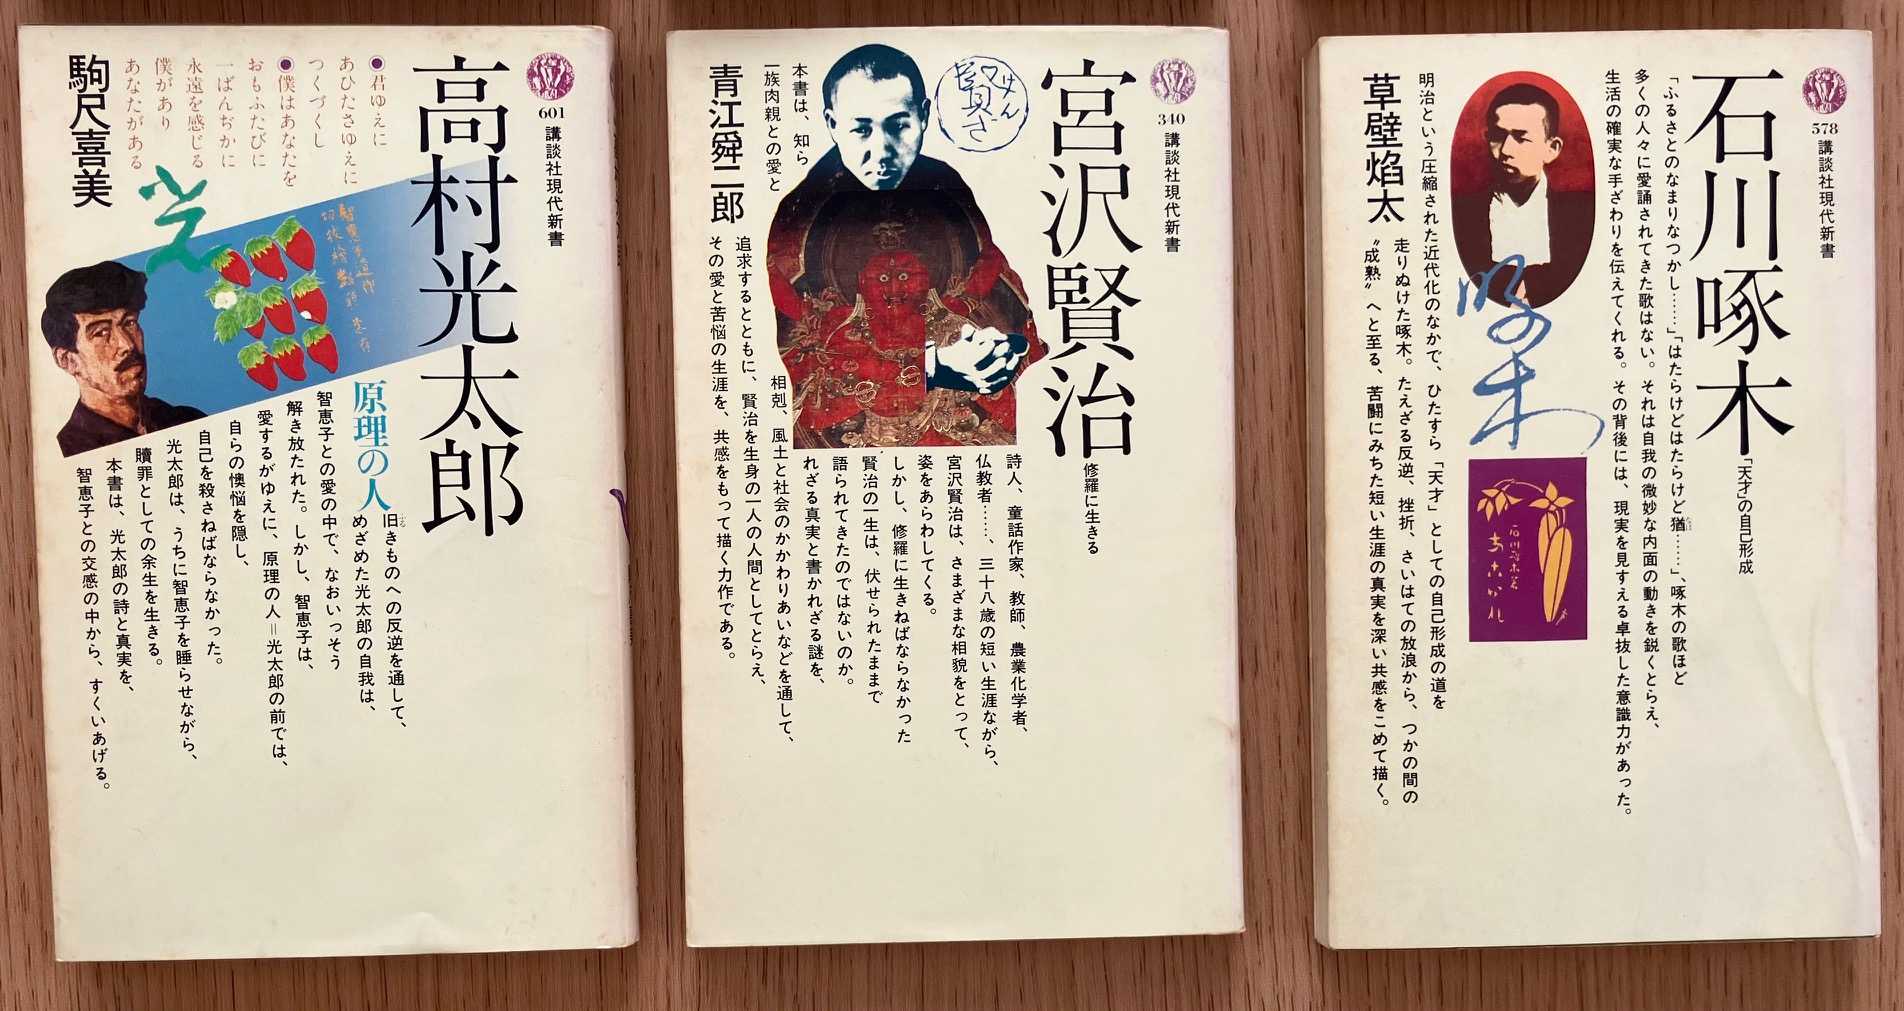 石川啄木
「天才」の自己形成
578
講談社現代新書
「ふるさとのなまりなつかし……」「はたらけどはたらけど猶……」、啄木の歌ほど
多くの人々に愛誦されてきた歌はない。それは自我の微妙な内面の動きを鋭くとらえ、
生活の確実な手ざわりを伝えてくれる。その背後には、現実を見すえる卓抜した意識力があった。
啄木
石川啄木著
あこがれ
明治という圧縮された近代化のなかで、ひたすら「天才」としての自己形成の道を
走りぬけた啄木。たえざる反逆、挫折、さいはての放浪から、つかの間の
〝成熟〟へと至る、苦闘にみちた短い生涯の真実を深い共感をこめて描く。
草壁焰太
宮沢賢治
修羅に生きる
340
講談社現代新書
詩人、童話作家、教師、農業化学者、
仏教者……、三十八歳の短い生涯ながら、
宮沢賢治は、さまざまな相貌をとって、
姿をあらわしてくる。
しかし、修羅に生きねばならなかった
賢治の一生は、伏せられたままで
語られてきたのではないのか。
本書は、知ら
れざる真実と書かれざる謎を、
一族肉親との愛と
相剋、風土と社会のかかわりあいなどを通して、
追求するとともに、賢治を生身の一人の人間としてとらえ、
その愛と苦悩の生涯を、共感をもって描く力作である。
青江舜二郎
高村光太郎
原理の人
601
講談社現代新書
●君ゆえに
あひたさゆえに
つくづくし
●僕はあなたを
おもふたびに
一ばんぢかに
永遠を感じる
僕があり
あなたがある
光
旧きものへの反逆を通して、
めざめた光太郎の自我は、
智恵子との愛の中で、なおいっそう
解き放たれた。しかし、智恵子は、
愛するがゆえに、原理の人＝光太郎の前では、
自らの懊悩を隠し、
自己を殺さねばならなかった。
光太郎は、うちに智恵子を睡らせながら、
贖罪としての余生を生きる。
本書は、光太郎の詩と真実を、
智恵子との交感の中から、すくいあげる。
駒尺喜美